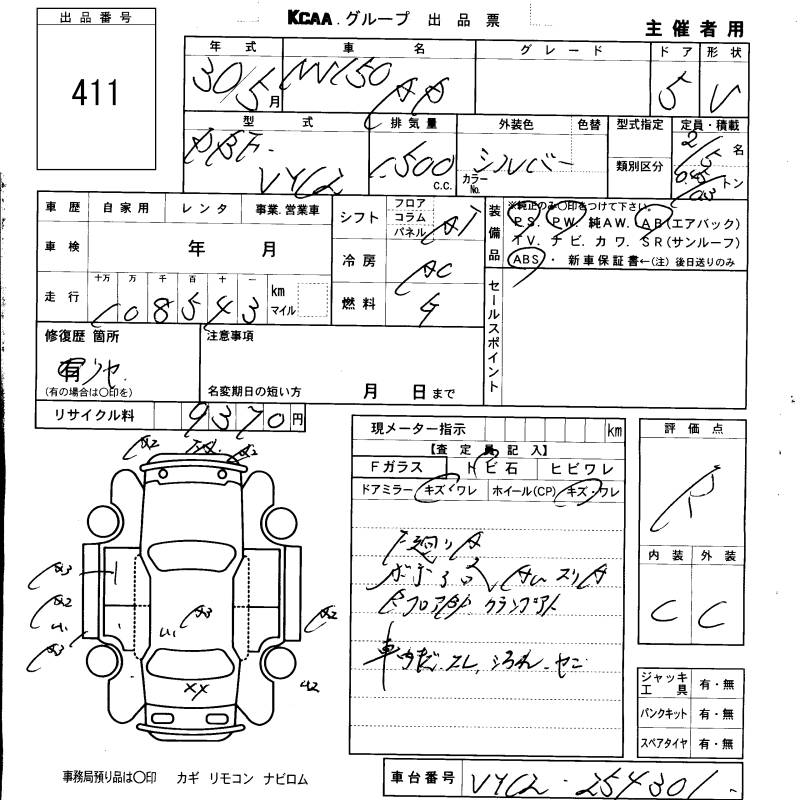 KCAA グループ 出品票
主催者用
出品番号
411
年式 車名 グレード ドア 形状
30/5月 NV150 AD 5 V
型式 排気量 外装色 色替 型式指定 定員・積載
DBF-VY12 1500 c.c. シルバー カラーNo. 類別区分 2/5名 トン
車歴 自家用 レンタ 事業.営業車
車検 年 月
走行 十万 万 千 百 十 一
108543 km マイル
シフト フロア コラム パネル AT
冷房 AC
燃料 G
装備品
※純正のみ〇印をつけて下さい。
PS. PW. 純AW. AB(エアバック)
TV. ナビ. カワ. SR(サンルーフ)
ABS ・ 新車保証書←(注) 後日送りのみ
セールスポイント
修復歴 箇所
有
(有の場合は〇印を)
注意事項
名変期日の短い方 月 日まで
リサイクル料 9370円
現メーター指示 km
【査定員記入】
Fガラス トビ石 ヒビワレ
ドアミラー キズ・ワレ ホイール(CP) キズ・ワレ
評価点
R
内装 外装
C C
A2 A2
A3
A2
A3
A3
A2
XX
ジャッキ工具 有・無
パンクキット 有・無
スペアタイヤ 有・無
事務局預り品は〇印 カギ リモコン ナビロム
車台番号 VY12-254301